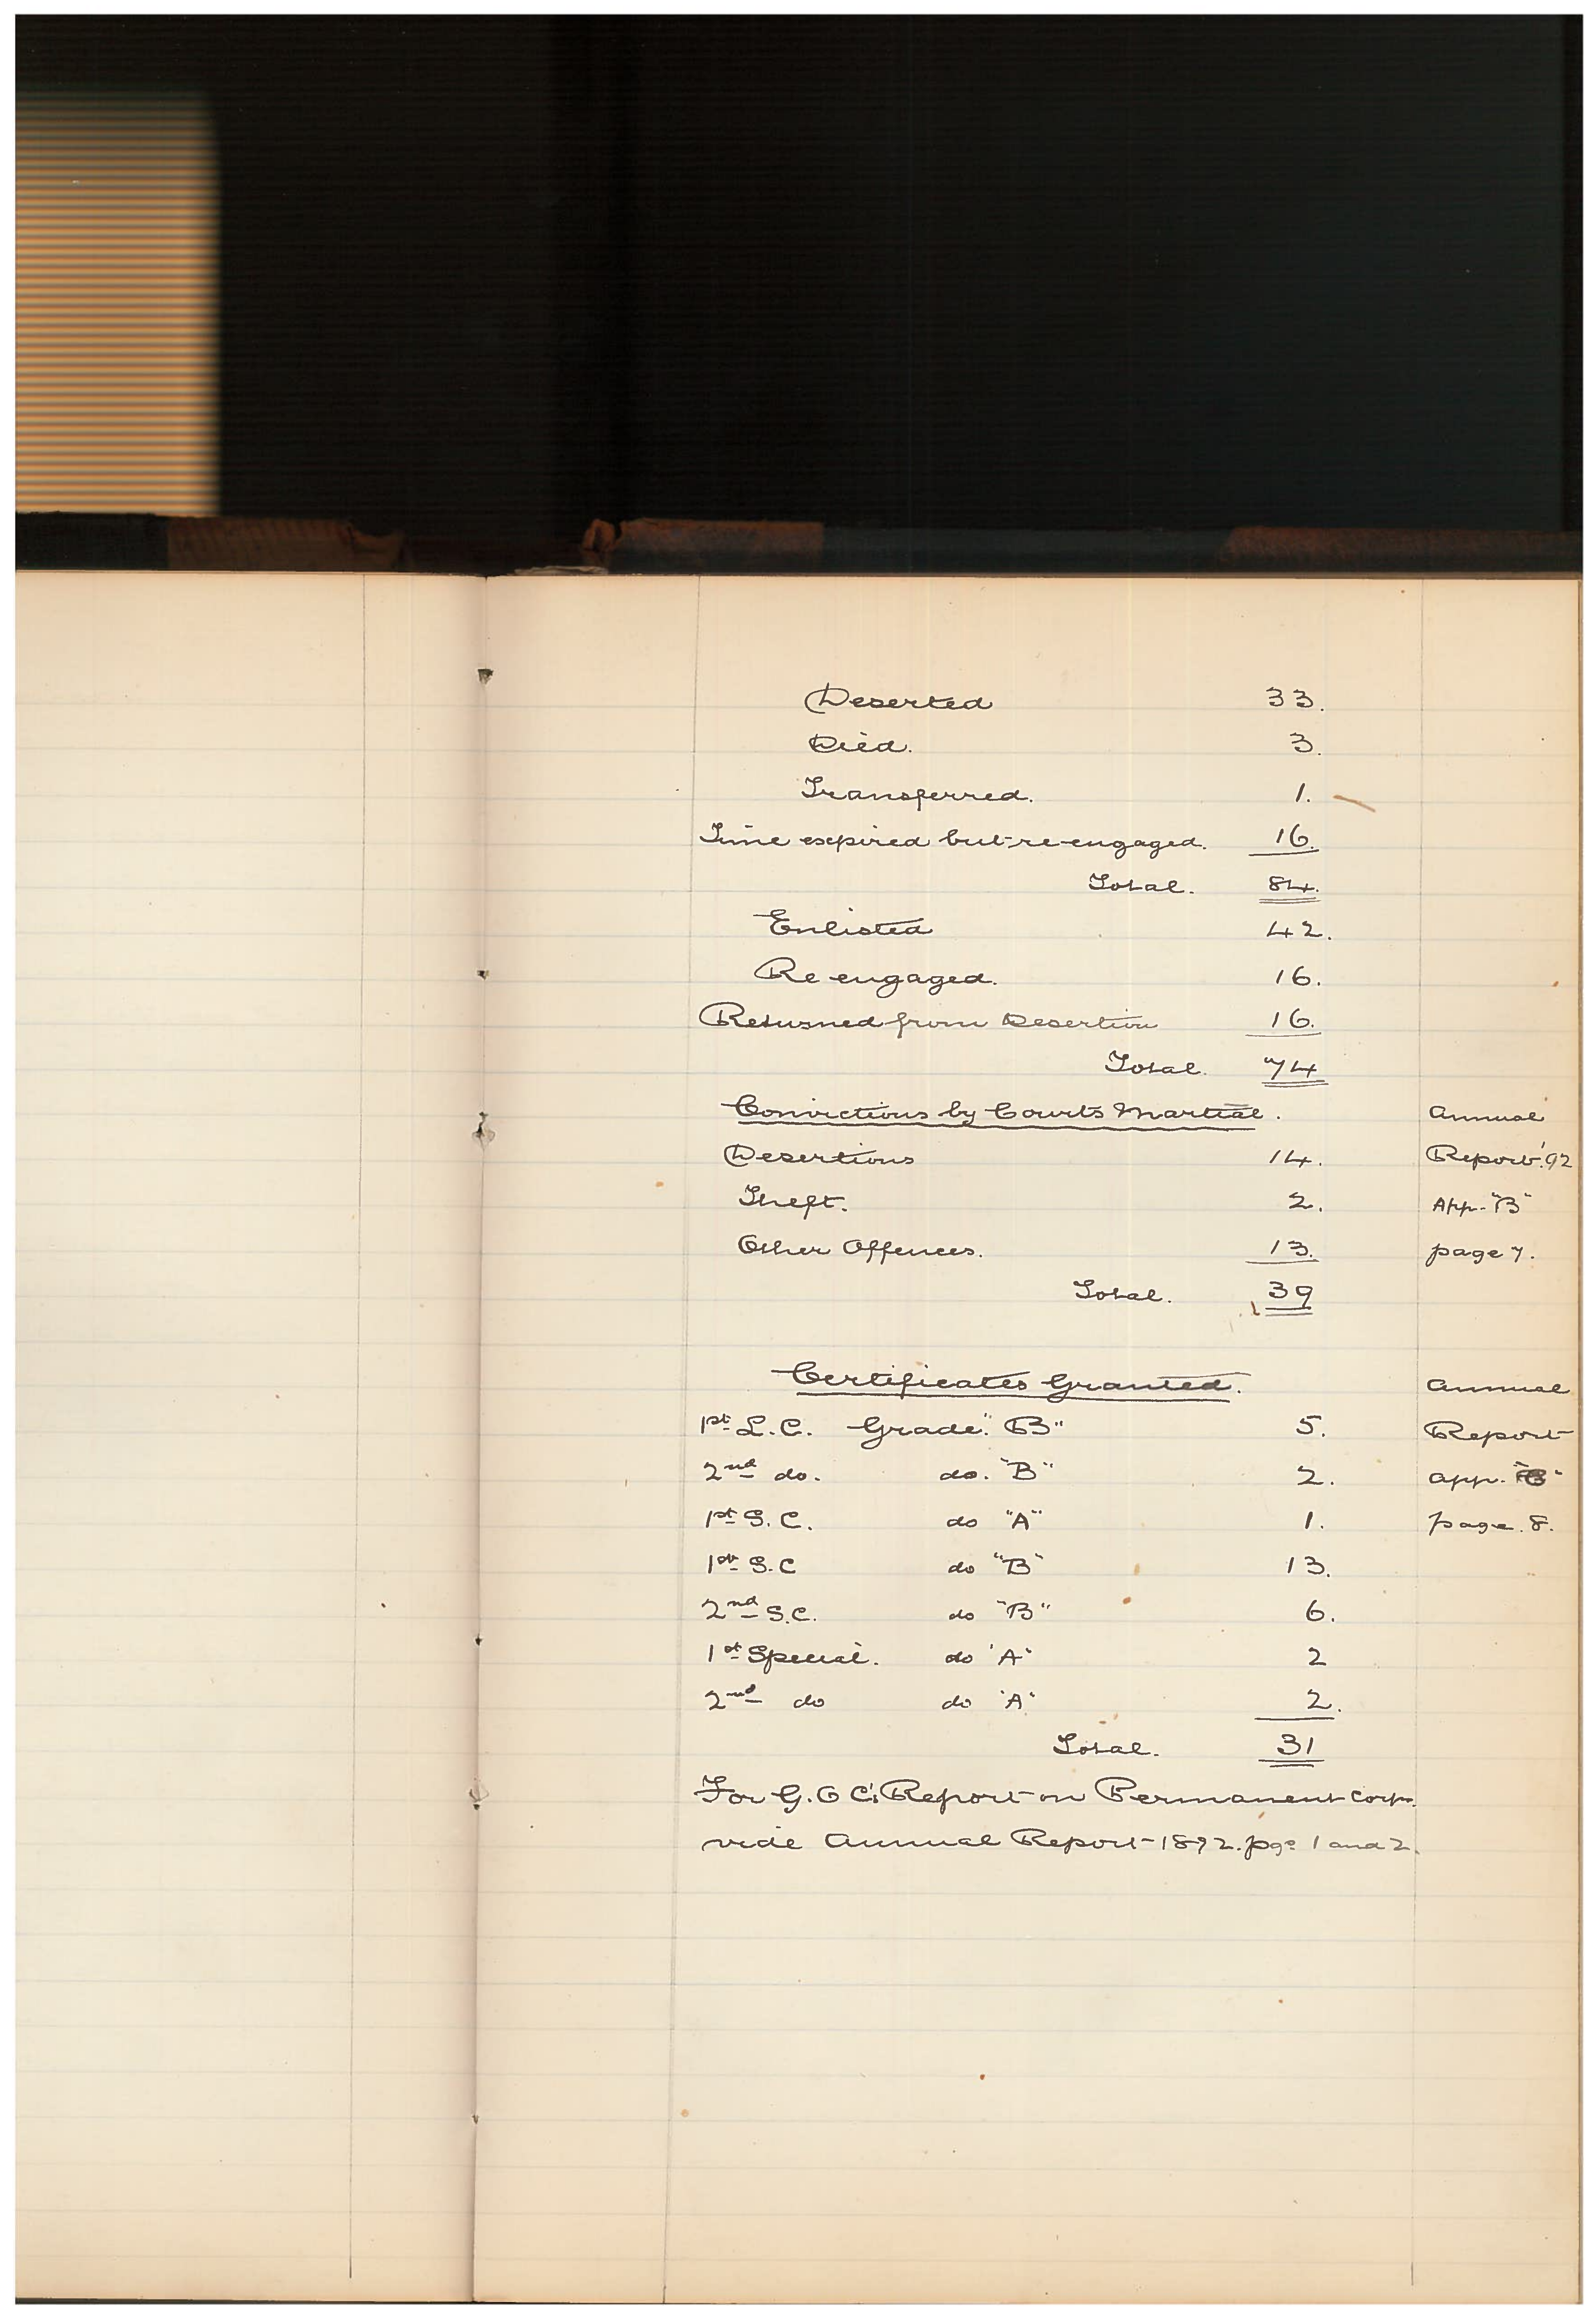 Deserted 33.
Died. 3.
Transferred. 1.
Time expired but re-engaged. 16.
Total. 84.
Enlisted 42.
Re engaged. 16.
Returned from Desertion 16.
Total. 74
Convictions by Courts Martial. Annual
Desertions 14. Report '92
Theft. 2. App. "B"
Other Offences. 13. page 7.
Total. 39
Certificates Granted. Annual
1st L.C. Grade "B" 5. Report
2nd do. do. "B" 2. app.
1st S.C. do "A" 1. page 8.
1st S.C do "B" 13.
2nd S.C. do "B" 6.
1st Special. do "A" 2
2nd do do "A" 2.
Total. 31
For G.O.C's Report on Permanent Corps.
vide Annual Report 1892. pgs 1 and 2.